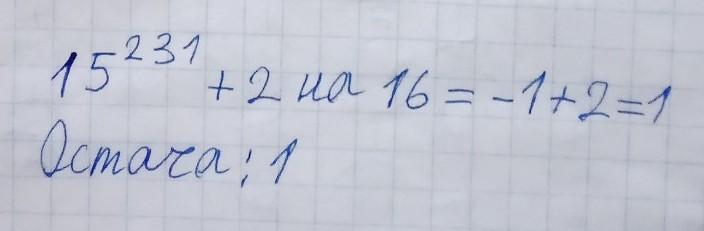 15²³¹ + 2 на 16 = -1+2=1
Остача: 1